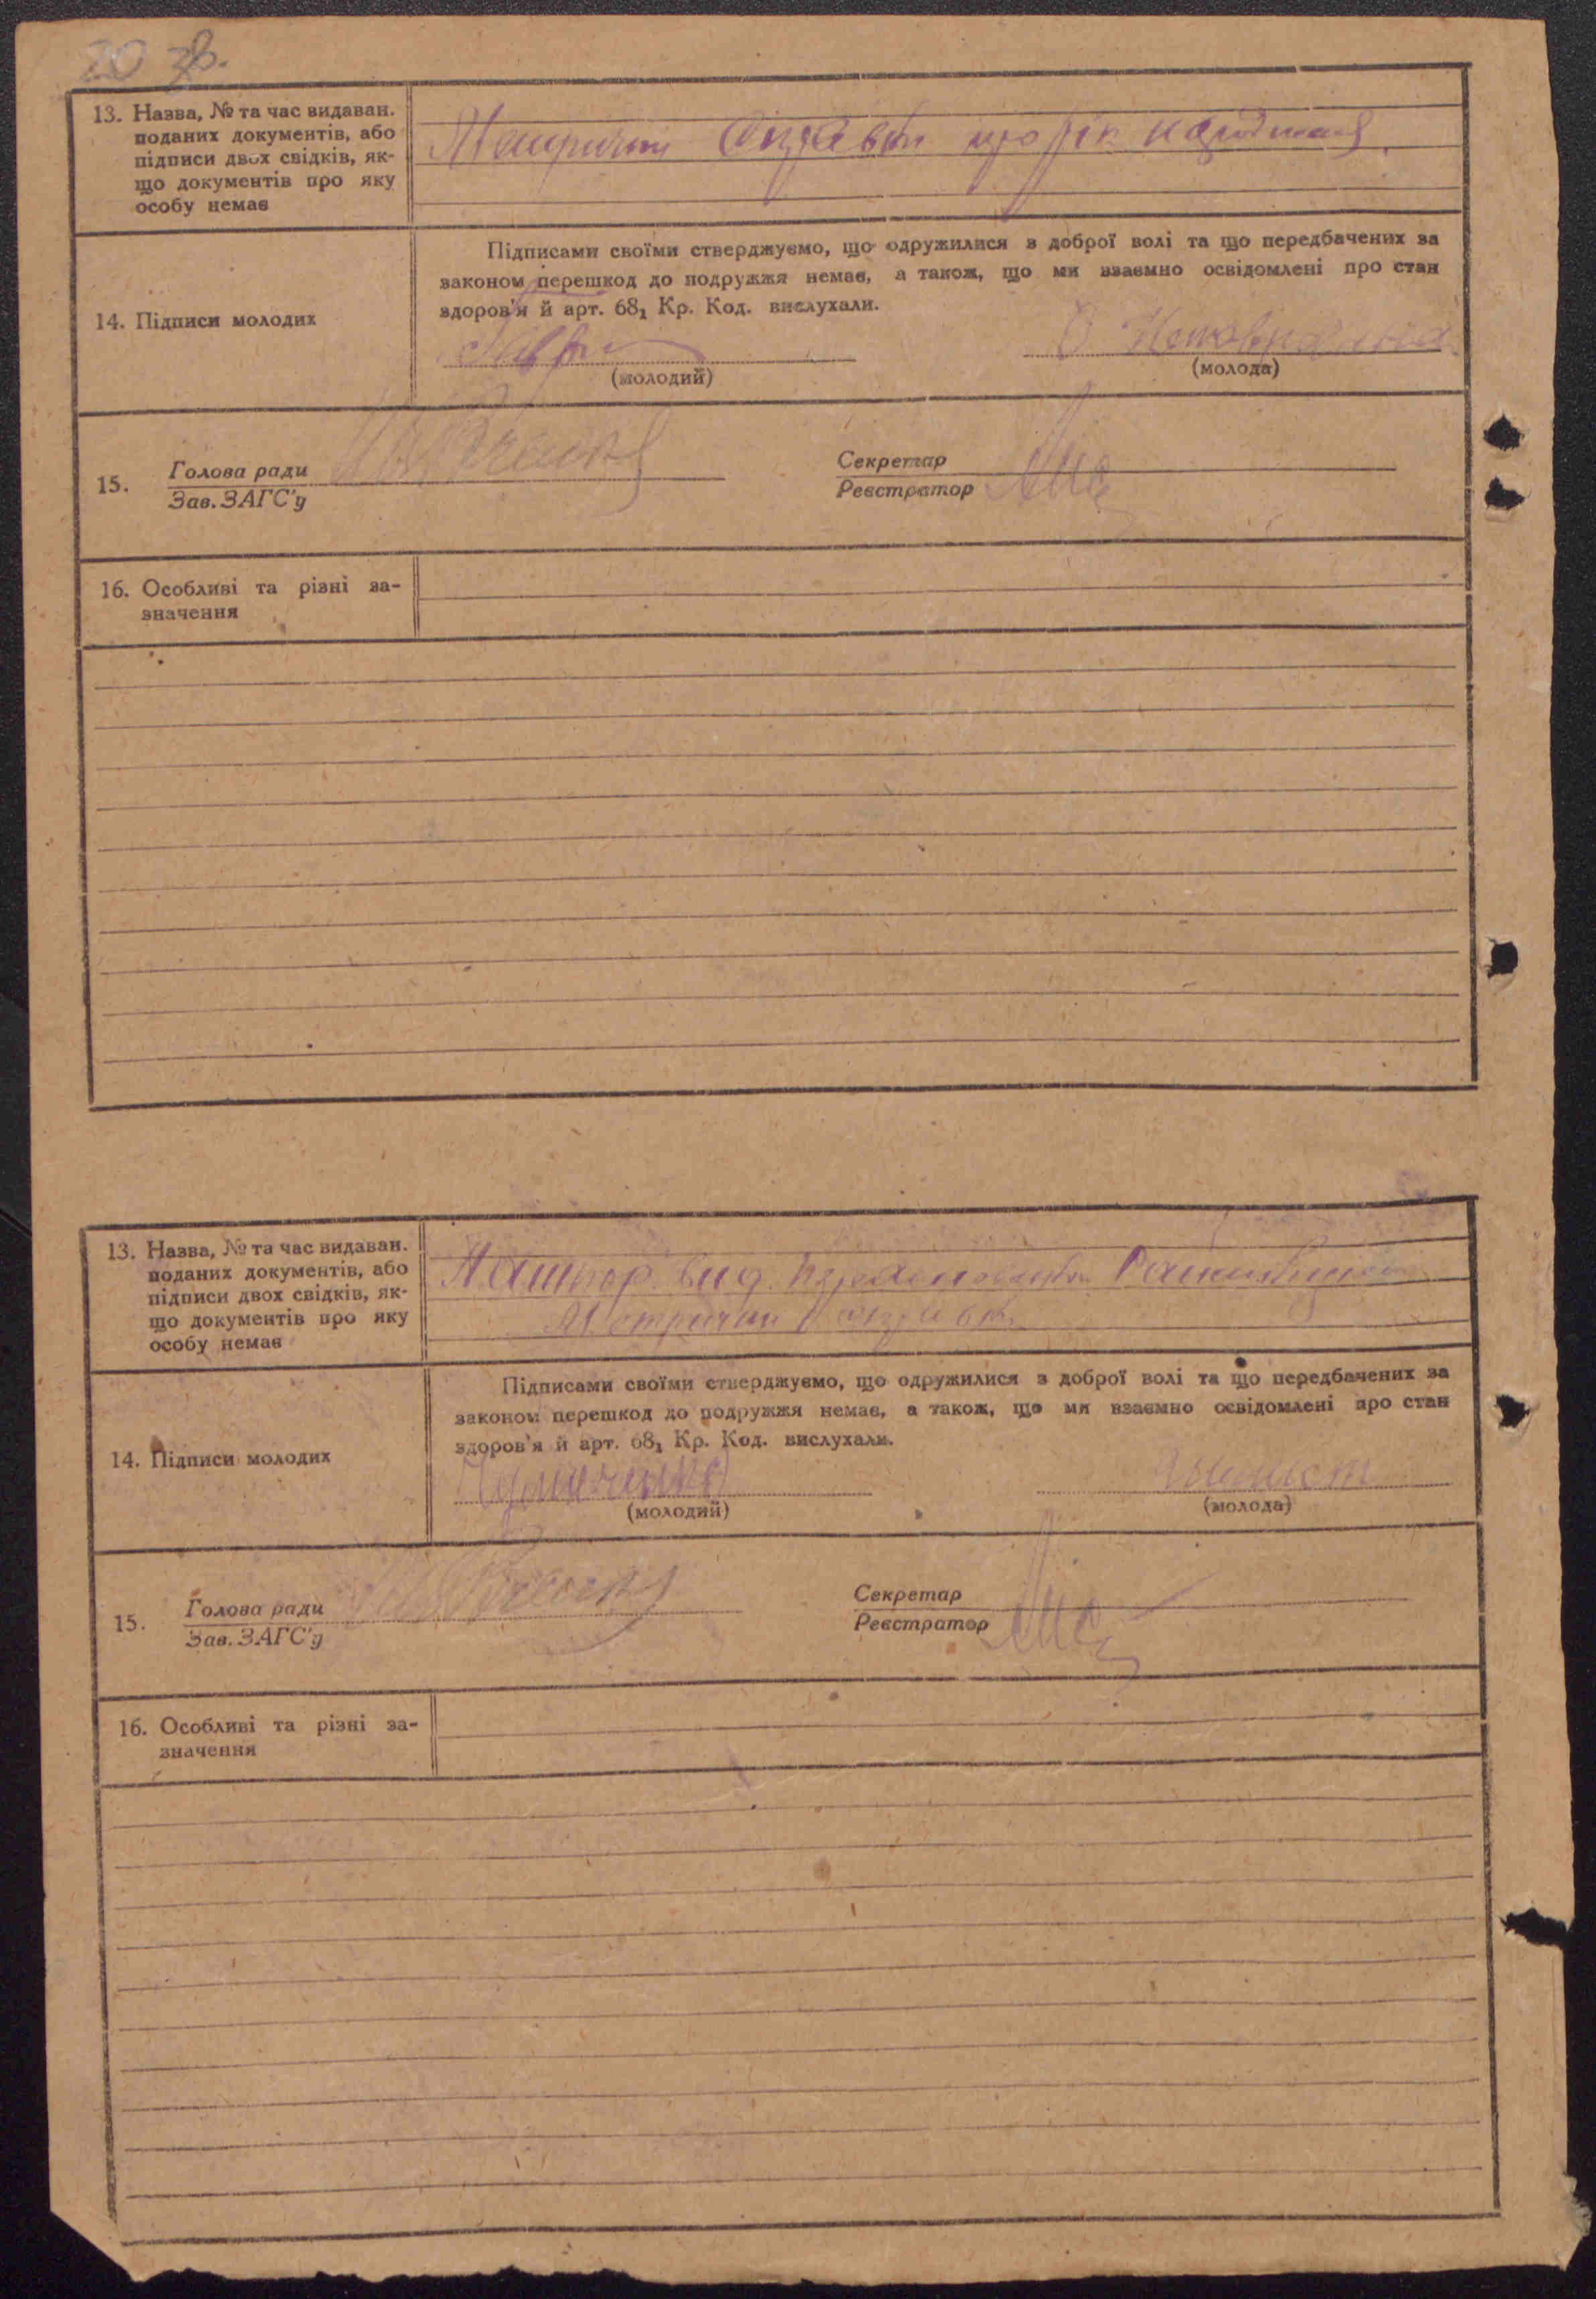 20 зв.
13. Назва, № та час видаван.
поданих документів, або
підписи двох свідків, як-
що документів про яку
особу немає
Метричні справки про рік народження
Підписами своїми стверджуємо, що одружилися з доброї волі та що передбачених за
законом перешкод до подружжя немає, а також, що ми взаємно освідомлені про стан
здоров'я й арт. 68₁ Кр. Код. вислухали.
14. Підписи молодих
(молодий)
(молода)
15.
Голова ради
Зав. ЗАГС'у
Секретар
Реєстратор
16. Особливі та різні за-
значення
13. Назва, № та час видаван.
поданих документів, або
підписи двох свідків, як-
що документів про яку
особу немає
Пашпор. вид.
Метричні справки
Підписами своїми стверджуємо, що одружилися з доброї волі та що передбачених за
законом перешкод до подружжя немає, а також, що ми взаємно освідомлені про стан
здоров'я й арт. 68₁ Кр. Код. вислухали.
14. Підписи молодих
(молодий)
(молода)
15.
Голова ради
Зав. ЗАГС'у
Секретар
Реєстратор
16. Особливі та різні за-
значення